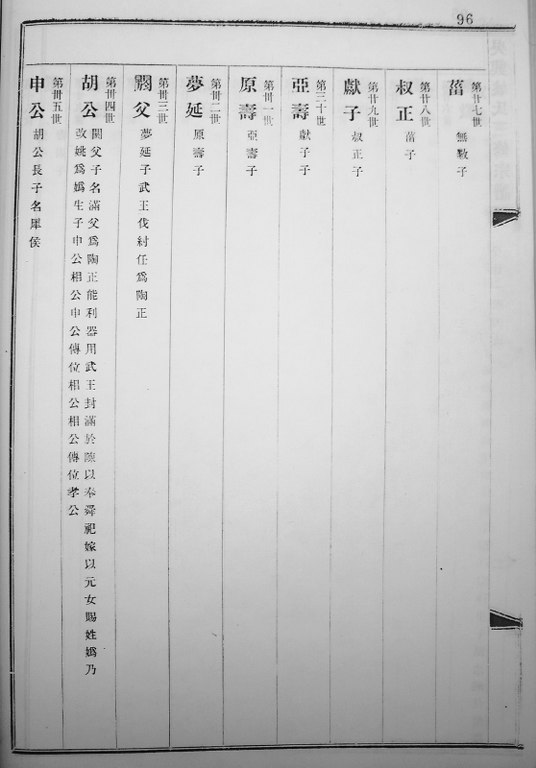 96
第廿七世
菑
無數子
第廿八世
叔正
菑子
第廿九世
獻子
叔正子
第三十世
亞壽
獻子子
第卅一世
原壽
亞壽子
第卅二世
夢延
原壽子
第卅三世
閼父
夢延子武王伐紂任爲陶正
第卅四世
胡公
閼父子名滿父爲陶正能利器用武王封滿於陳以奉舜祀嫁以元女賜姓嬀乃
改姚爲嬀生子申公相公申公傳位相公相公傳位孝公
第卅五世
申公
胡公長子名犀侯